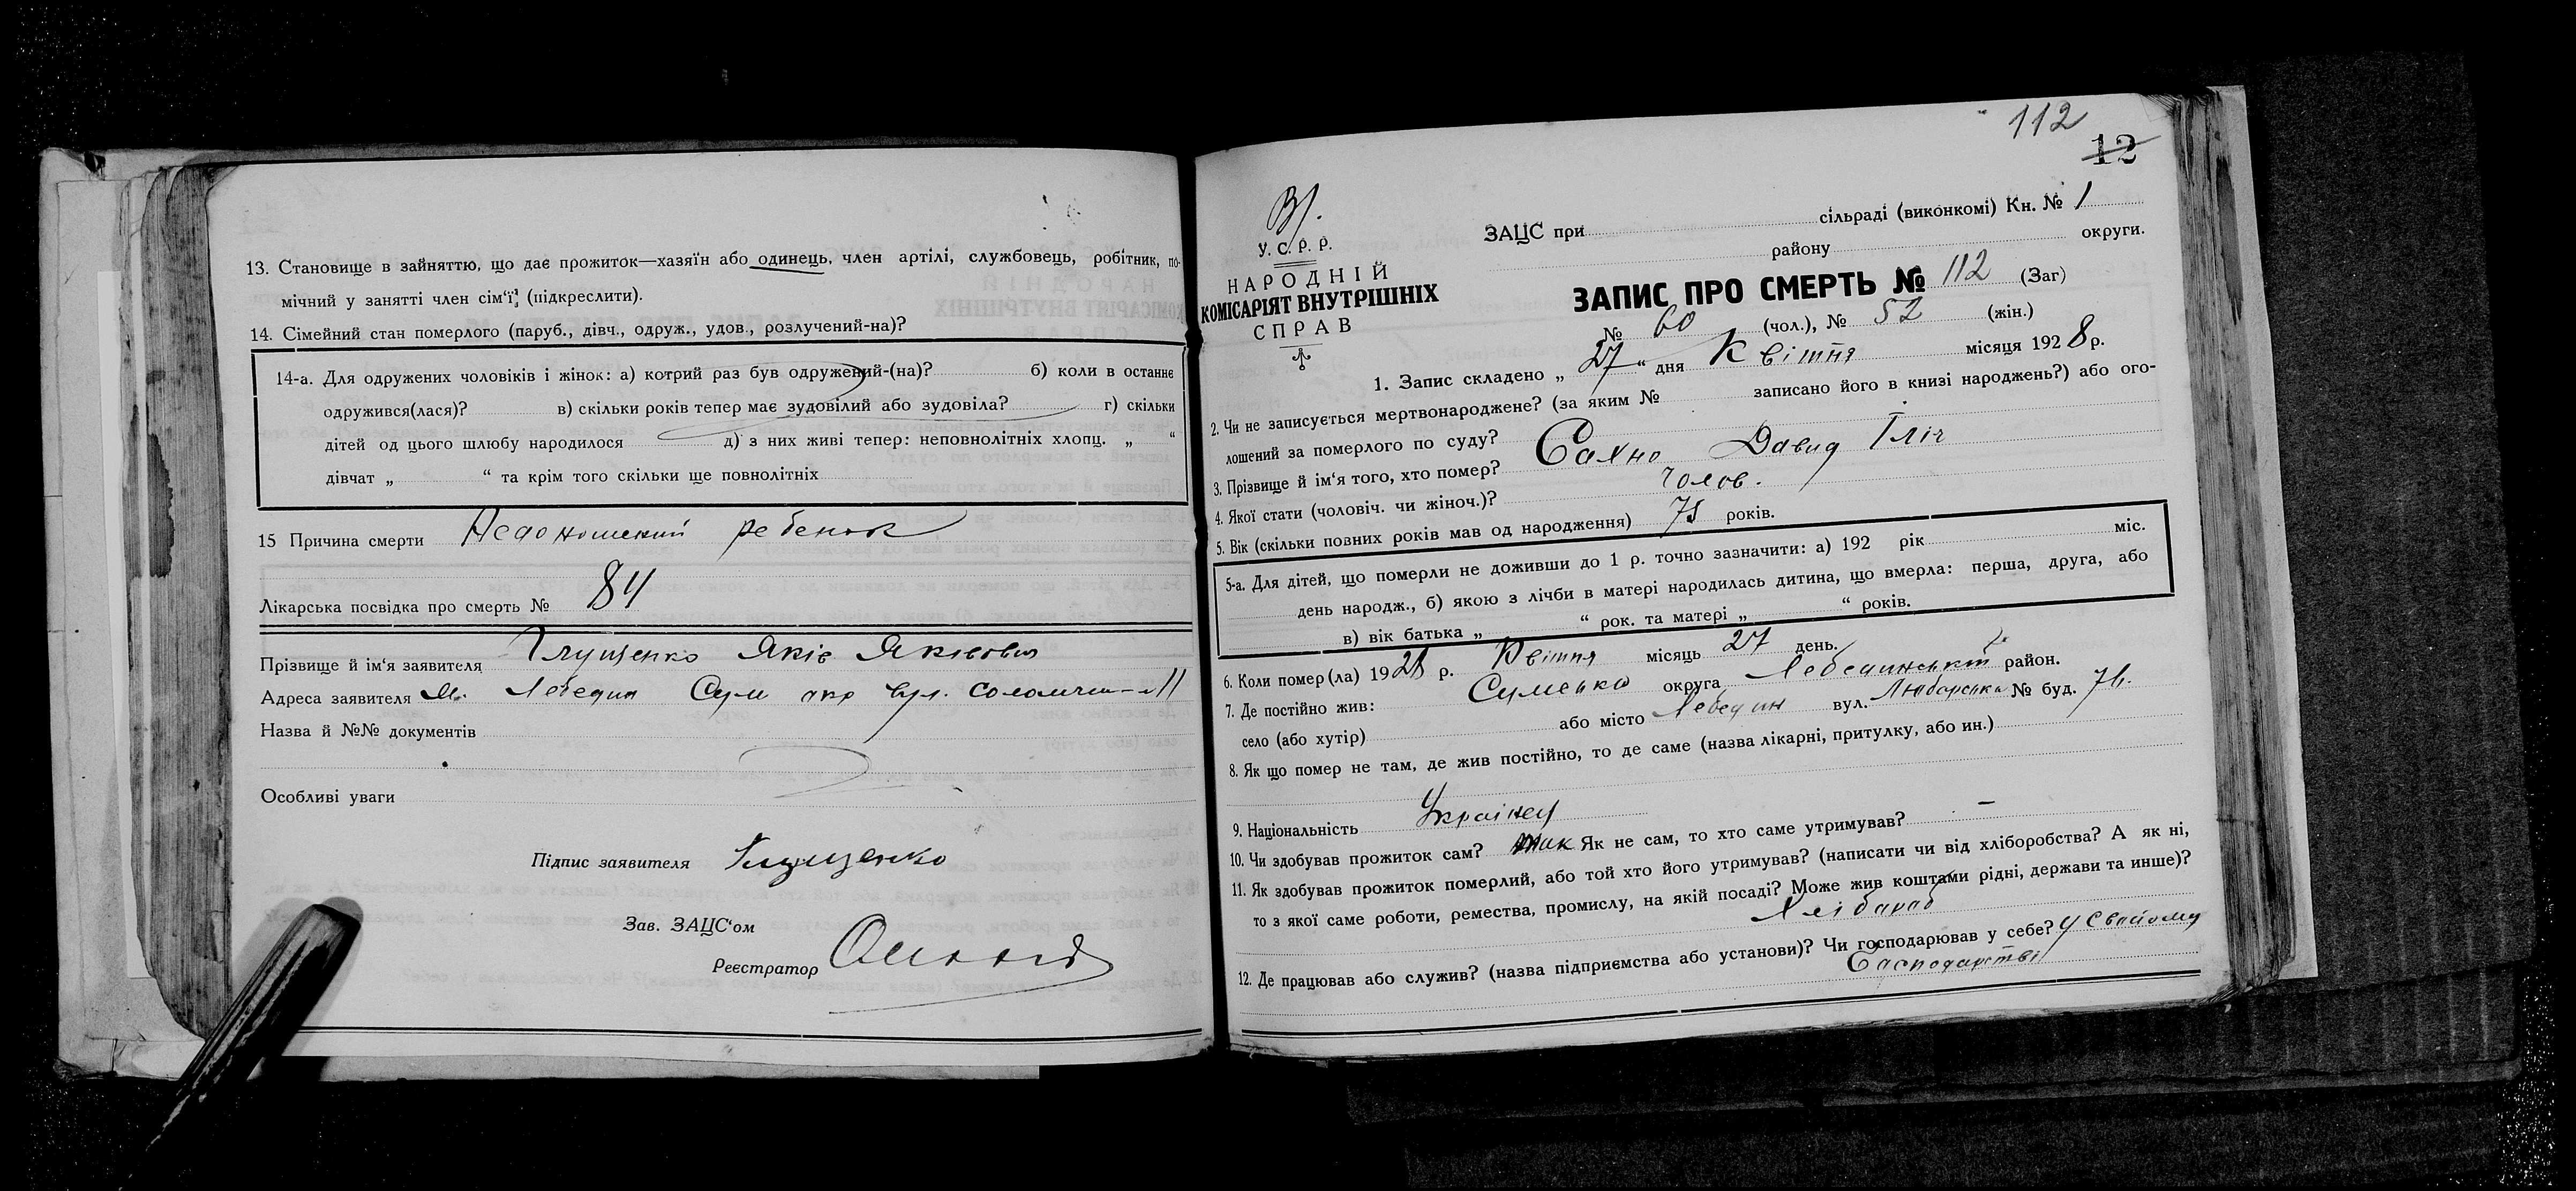 13. Становище в зайняттю, що дає прожиток—хазяїн або одинець, член артілі, службовець, робітник, по-
мічний у занятті член сім‘ї (підкреслити).
14. Сімейний стан померлого (паруб., дівч., одруж., удов., розлучений-на)?
14-а. Для одружених чоловіків і жінок: а) котрий раз був одружений-(на)? б) коли в останнє
одружився(лася)? в) скільки років тепер має зудовілий або зудовіла? г) скільки
дітей од цього шлюбу народилося д) з них живі тепер: неповнолітніх хлопц. „ “
дівчат „ “ та крім того скільки ще повнолітніх
15 Причина смерти Недоношений ребенок
Лікарська посвідка про смерть № 84
Прізвище й ім‘я заявителя Глущенко Яків Якович
Адреса заявителя м. Лебедин Сум окр вул.
Назва й №№ документів
Особливі уваги
Підпис заявителя Глущенко
Зав. ЗАЦС‘ом
Реєстратор
112
12
У. С. Р. Р.
НАРОДНІЙ
КОМІСАРІЯТ ВНУТРІШНІХ
СПРАВ
ЗАЦС при сільраді (виконкомі) Кн. № 1
району округи.
ЗАПИС ПРО СМЕРТЬ № 112 (Заг)
№ 60 (чол.), № 52 (жін.)
1. Запис складено „ 27 “ дня Квітня місяця 1928 р.
2. Чи не записується мертвонароджене? (за яким № записано його в книзі народжень?) або ого-
лошений за померлого по суду?
3. Прізвище й ім‘я того, хто помер? Сахно Давид Іліч
4. Якої стати (чоловіч. чи жіноч.)? Чолов.
5. Вік (скільки повних років мав од народження) 75 років.
5-а. Для дітей, що померли не доживши до 1 р. точно зазначити: а) 192 рік міс.
день народж., б) якою з лічби в матері народилась дитина, що вмерла: перша, друга, або
в) вік батька „ “ рок. та матері „ “ років.
6. Коли помер(ла) 1928 р. Квітня місяць 27 день.
7. Де постійно жив: Сумська округа Лебединський район.
село (або хутір) або місто Лебедин вул. Любарська № буд.
8. Як що помер не там, де жив постійно, то де саме (назва лікарні, притулку, або ин.)
9. Національність Українец
10. Чи здобував прожиток сам? так Як не сам, то хто саме утримував? —
11. Як здобував прожиток померлий, або той хто його утримував? (написати чи від хліборобства? А як ні,
то з якої саме роботи, ремества, промислу, на якій посаді? Може жив коштами рідні, держави та инше)?
Хлібароб
12. Де працював або служив? (назва підприємства або установи)? Чи господарював у себе? У Свойому
Гасподарстві